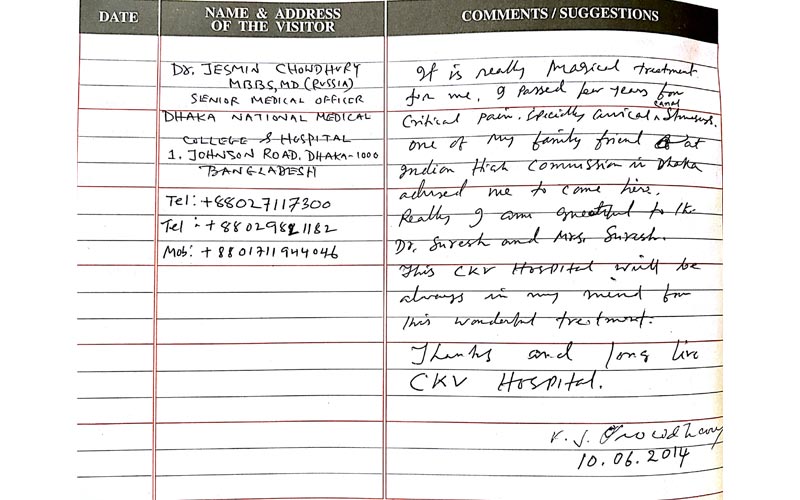 DATE
NAME & ADDRESS
OF THE VISITOR
COMMENTS / SUGGESTIONS
Dr. JESMIN CHOWDHURY
MBBS, MD (RUSSIA)
SENIOR MEDICAL OFFICER
DHAKA NATIONAL MEDICAL
COLLEGE & HOSPITAL
1. JOHNSON ROAD. DHAKA-1000
BANGLADESH
Tel: +88027117300
Tel : +8802982 1182
Mob: +8801711944046
It is really Magical treatment
for me. I passed few years for
Critical pain. Specially Cervical canal Stenosis.
one of my family friend at
Indian High Commission in Dhaka
advised me to come here.
Really I am grateful to the
Dr. Suresh and Mrs. Suresh.
This CKV Hospital will be
always in my mind for
this wonderful treatment.
Thanks and long live
CKV Hospital.
Chowdhury
10.06.2014